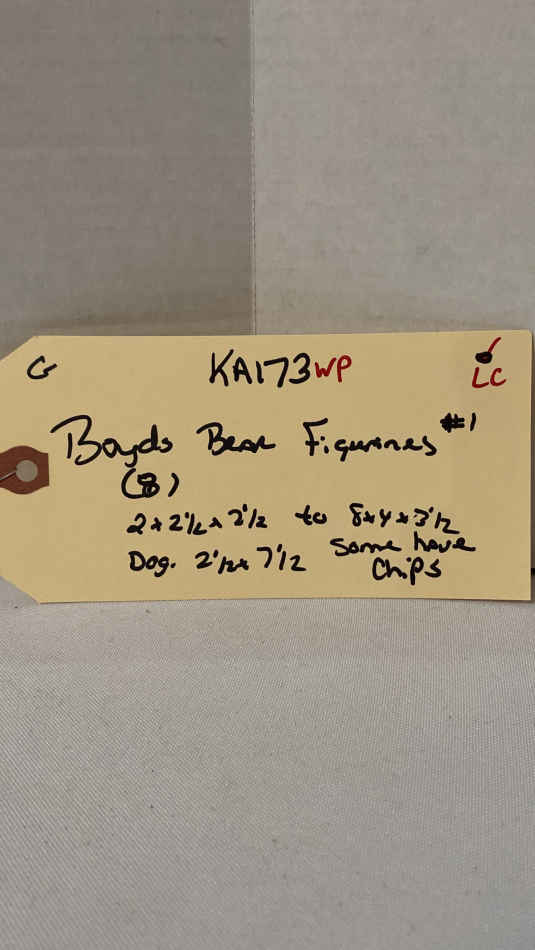 G KA173WP LC
Boyds Bear Figurines #1
(8)
2x2½x2½ to 8x4x3½
Dog. 2½x7½ Some have
Chips